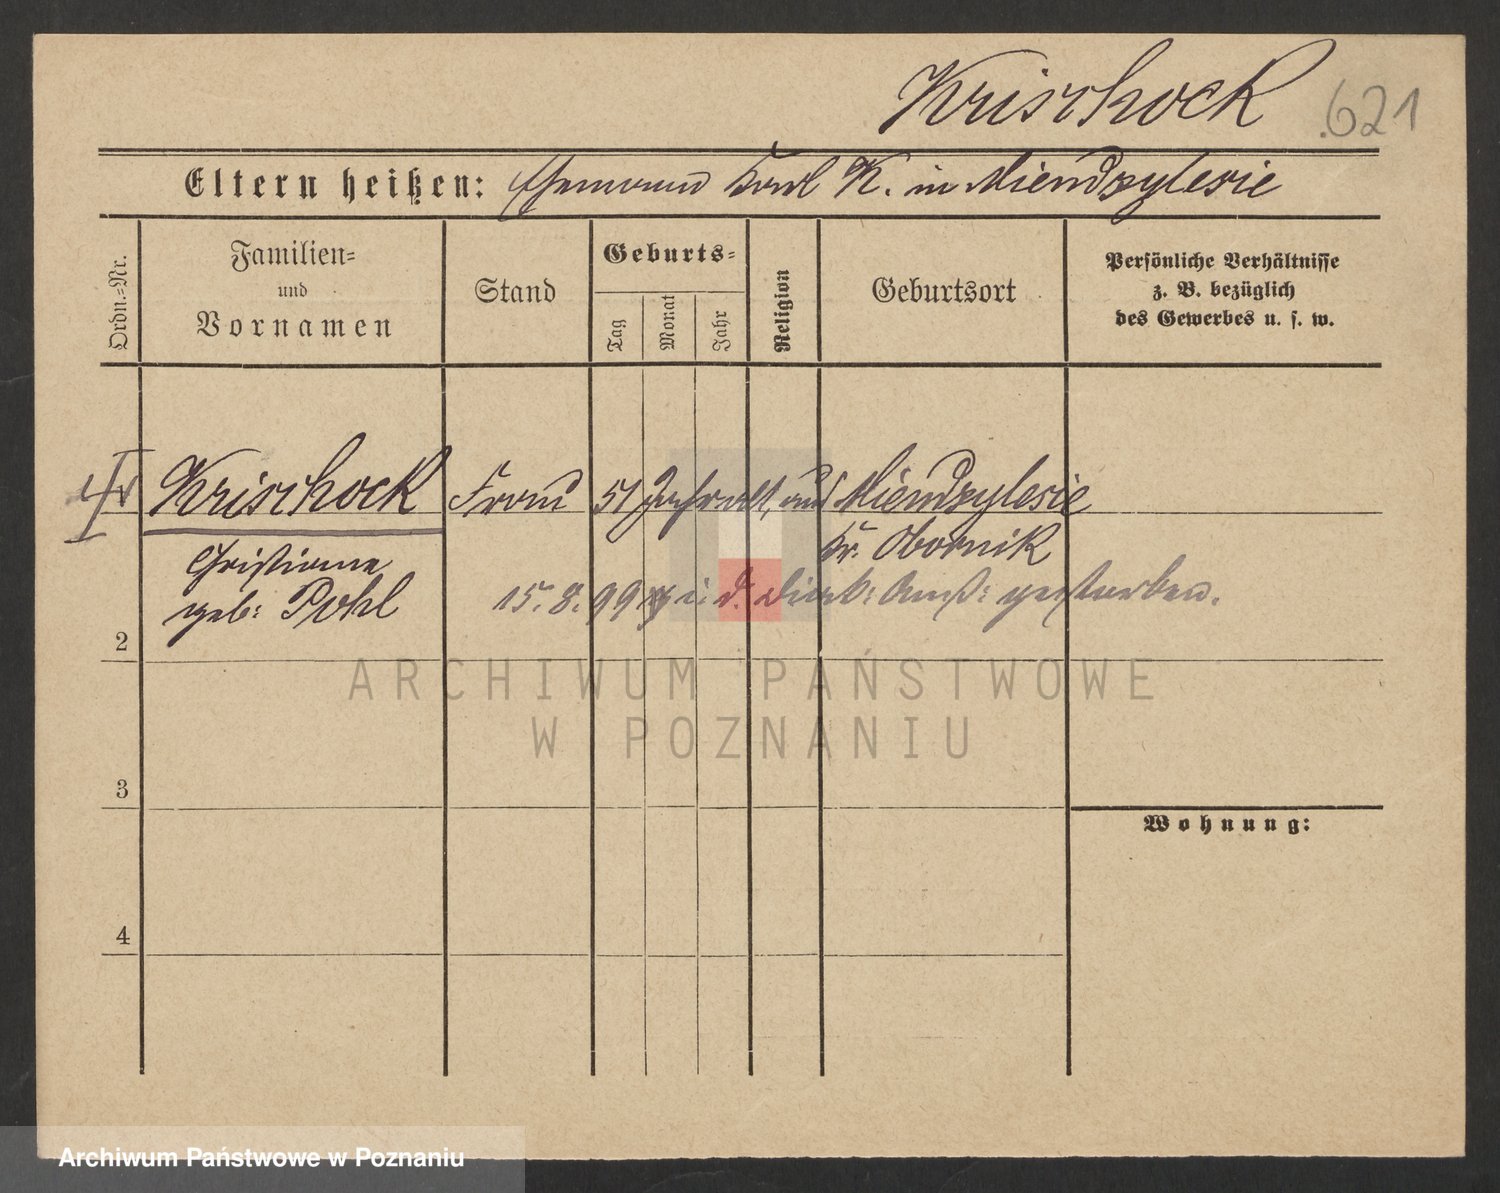 Krischock
621
Eltern heißen: Ehemann Karl K. in Miendzylesie
Ordn.-Nr.
Familien-
und
Vornamen
Stand
Geburts-
Tag
Monat
Jahr
Religion
Geburtsort
Persönliche Verhältnisse
z. B. bezüglich
des Gewerbes u. s. w.
Krischock Frau 51 Jahr alt, aus Miendzylesie
Kr. Obornik
Christiane
geb: Pohl
15. 8. 99 i. d. Diak: Anst: gestorben.
2
ARCHIWUM PAŃSTWOWE
W POZNANIU
3
Wohnung:
4
Archiwum Państwowe w Poznaniu